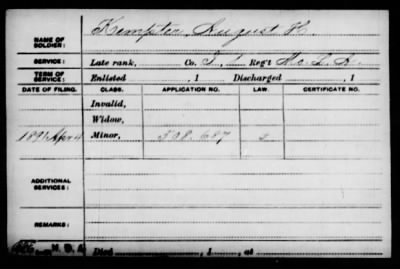 NAME OF SOLDIER: Kempter August H.
SERVICE: Late rank, Co. I, 1 Reg't Mo. L. A.
TERM OF SERVICE: Enlisted , 1 Discharged , 1
DATE OF FILING. CLASS. APPLICATION NO. LAW. CERTIFICATE NO.
Invalid,
Widow,
1891 Apr 4 Minor, 508.687
ADDITIONAL SERVICES:
REMARKS:
Died , 1 , at